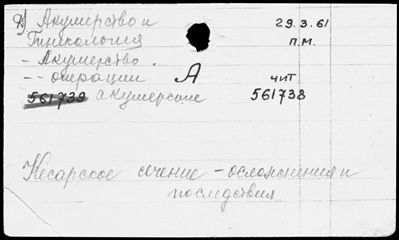 Акушерство и 29.3.61
Гинекология п.м.
- Акушерство.
-- операции А чит
561739 акушерские 561738
Кесарское сечение - осложнения и
последствия.